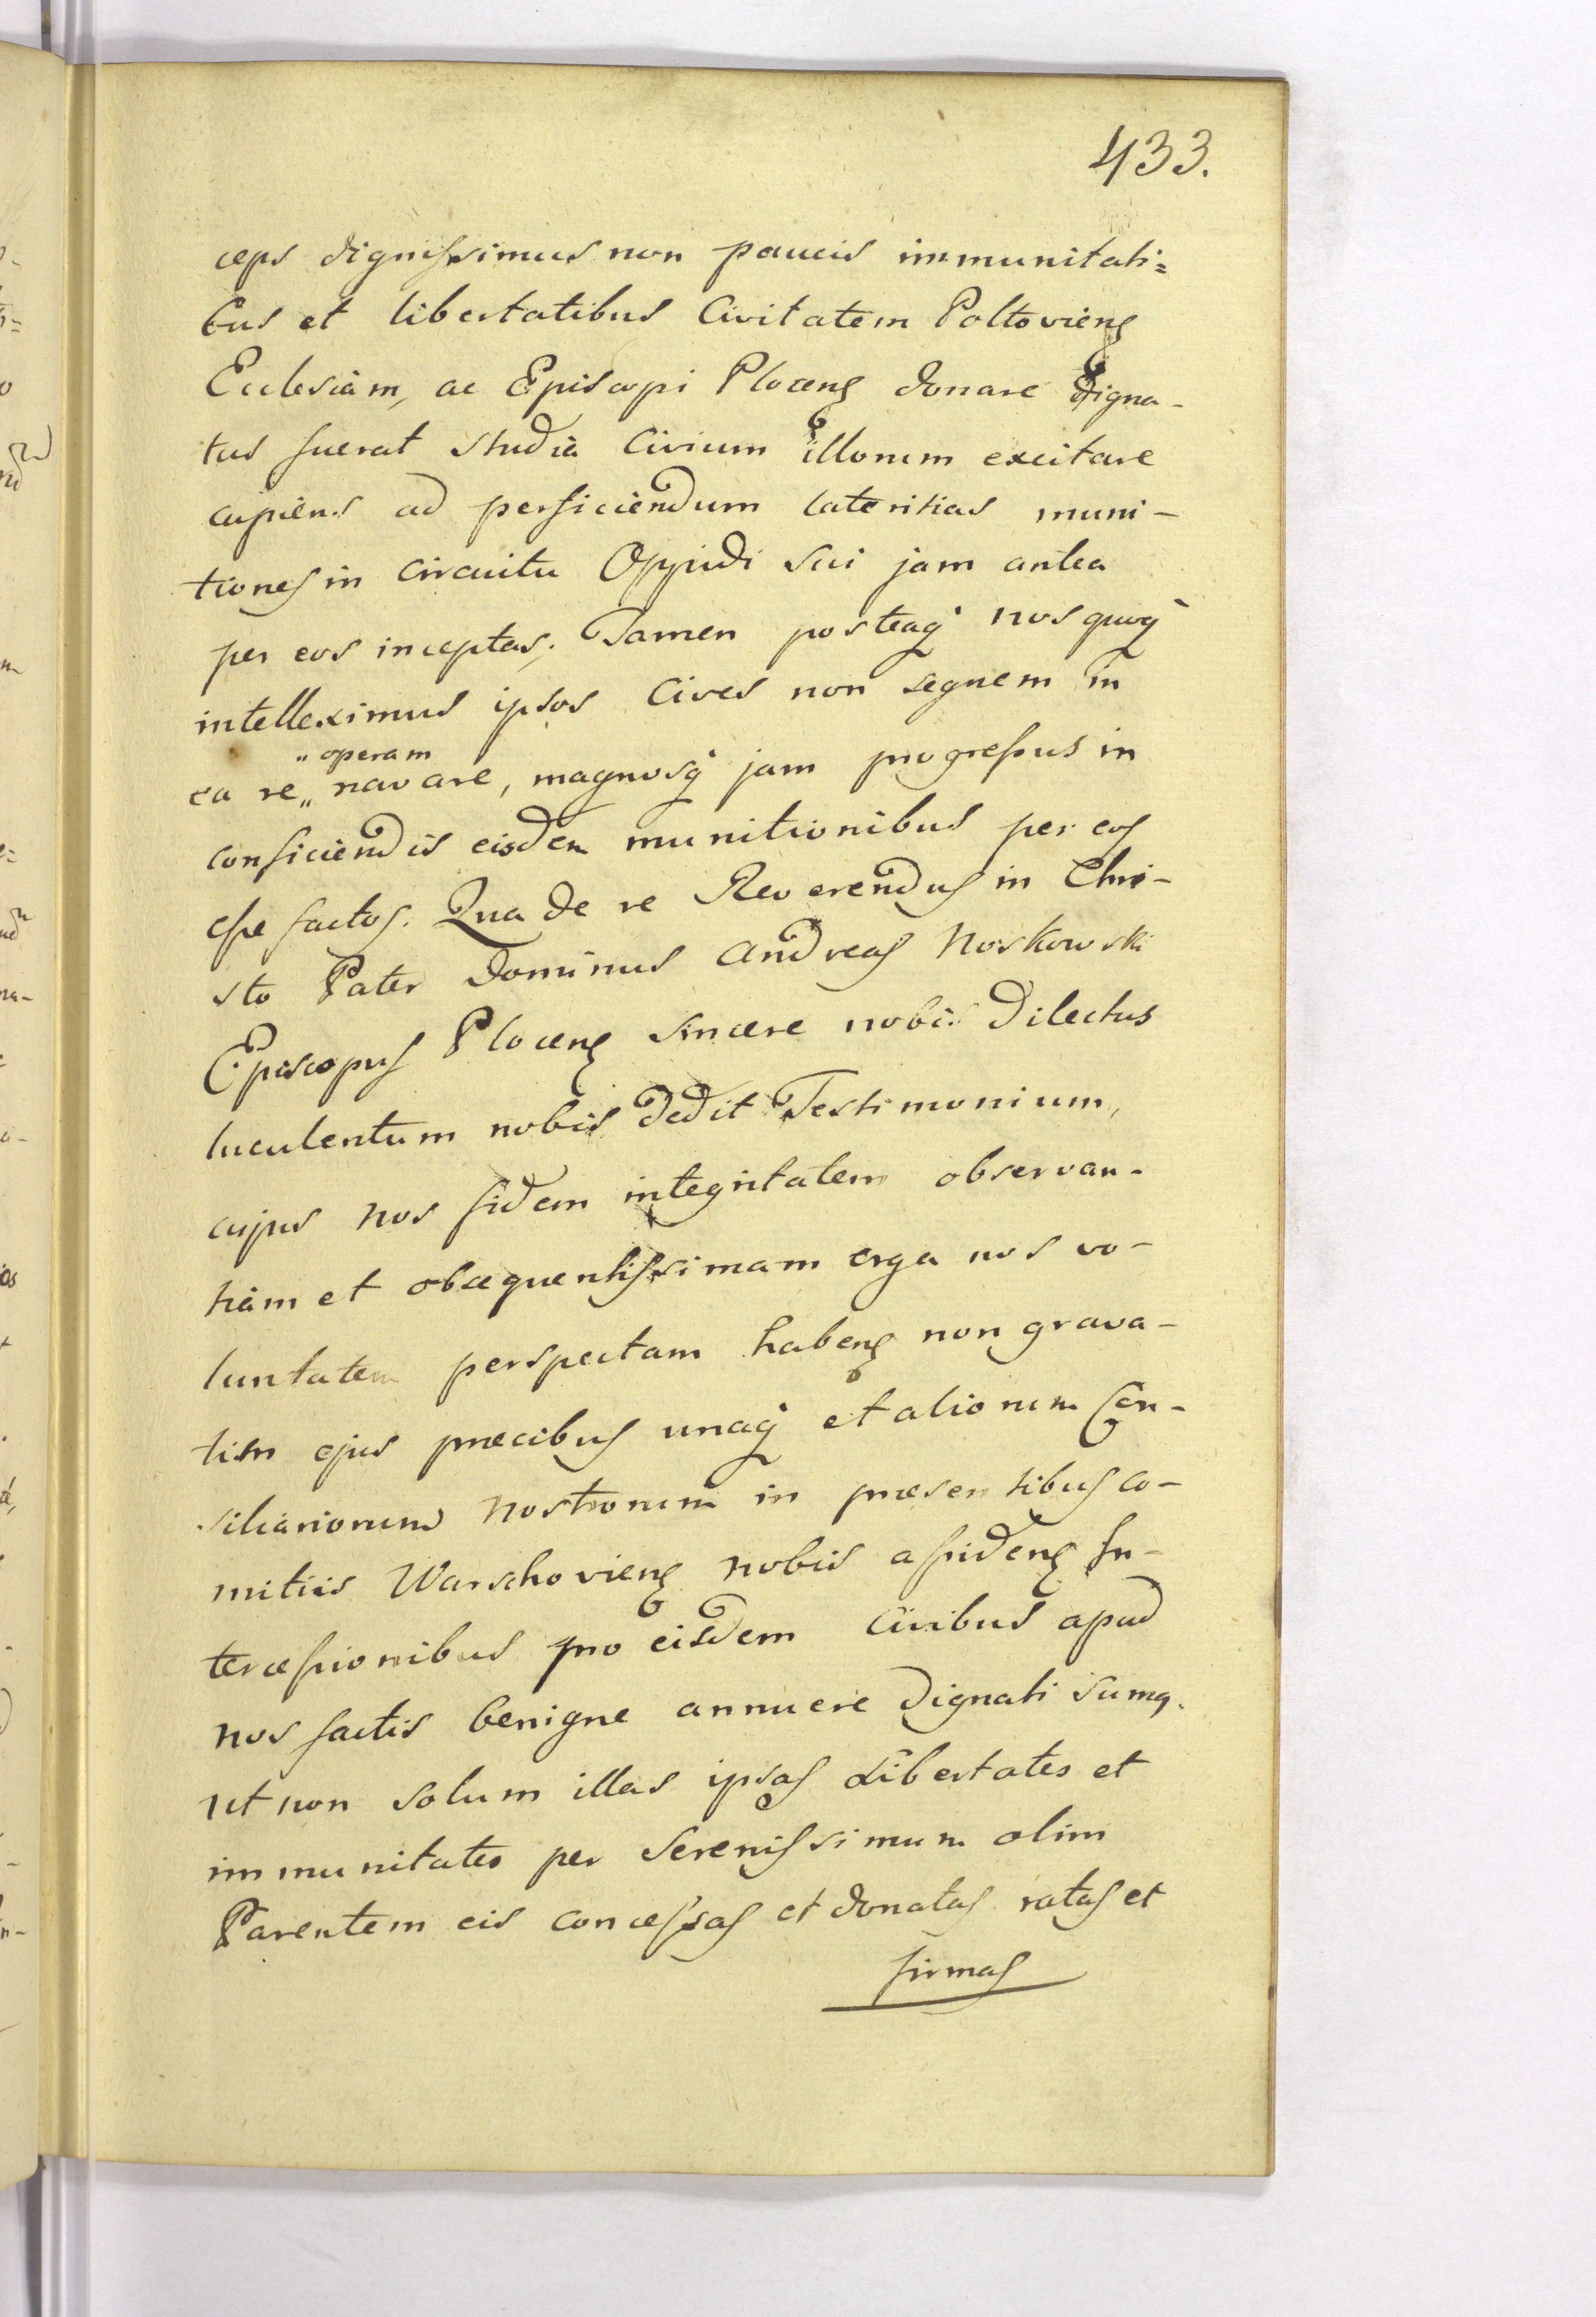 433.
ceps dignissimus non paucis immunitati=
bus et libertatibus Civitatem Poltoviens
Ecclesiam, ac Episcopi Plocens donare digna-
tus fuerat studia Civium illorum excitare
cupiens ad perficiendum lateritias muni-
tiones in circuitu Oppidi sui jam antea
per eos inceptas; Tamen posteaq nos quoq
intelleximus ipsos Cives non segnem in
„ operam
ea re „ navare, magnosq jam progressus in
conficiendis eisdem munitionibus per eos
esse factos. Qua de re Reverendus in Chri-
sto Pater Dominus Andreas Noskowski
Episcopus Plocens sincere nobis Dilectus
luculentum nobis dedit Testimonium,
cujus nos fidem integritatem observan-
tiam et obsequentissimam erga nos vo-
luntatem perspectam habens non grava-
tim ejus precibus unaq et aliorum Con-
siliariorum Nostrorum in præsentibus Co-
mitiis Warschoviens nobis assidens In-
tercessionibus pro eisdem civibus apud
nos factis benigne annuere dignati sumq.
ut non solum illas ipsas Libertates et
immunitates per Serenissimum olim
Parentem eis concessas et donatas ratas et
firmas